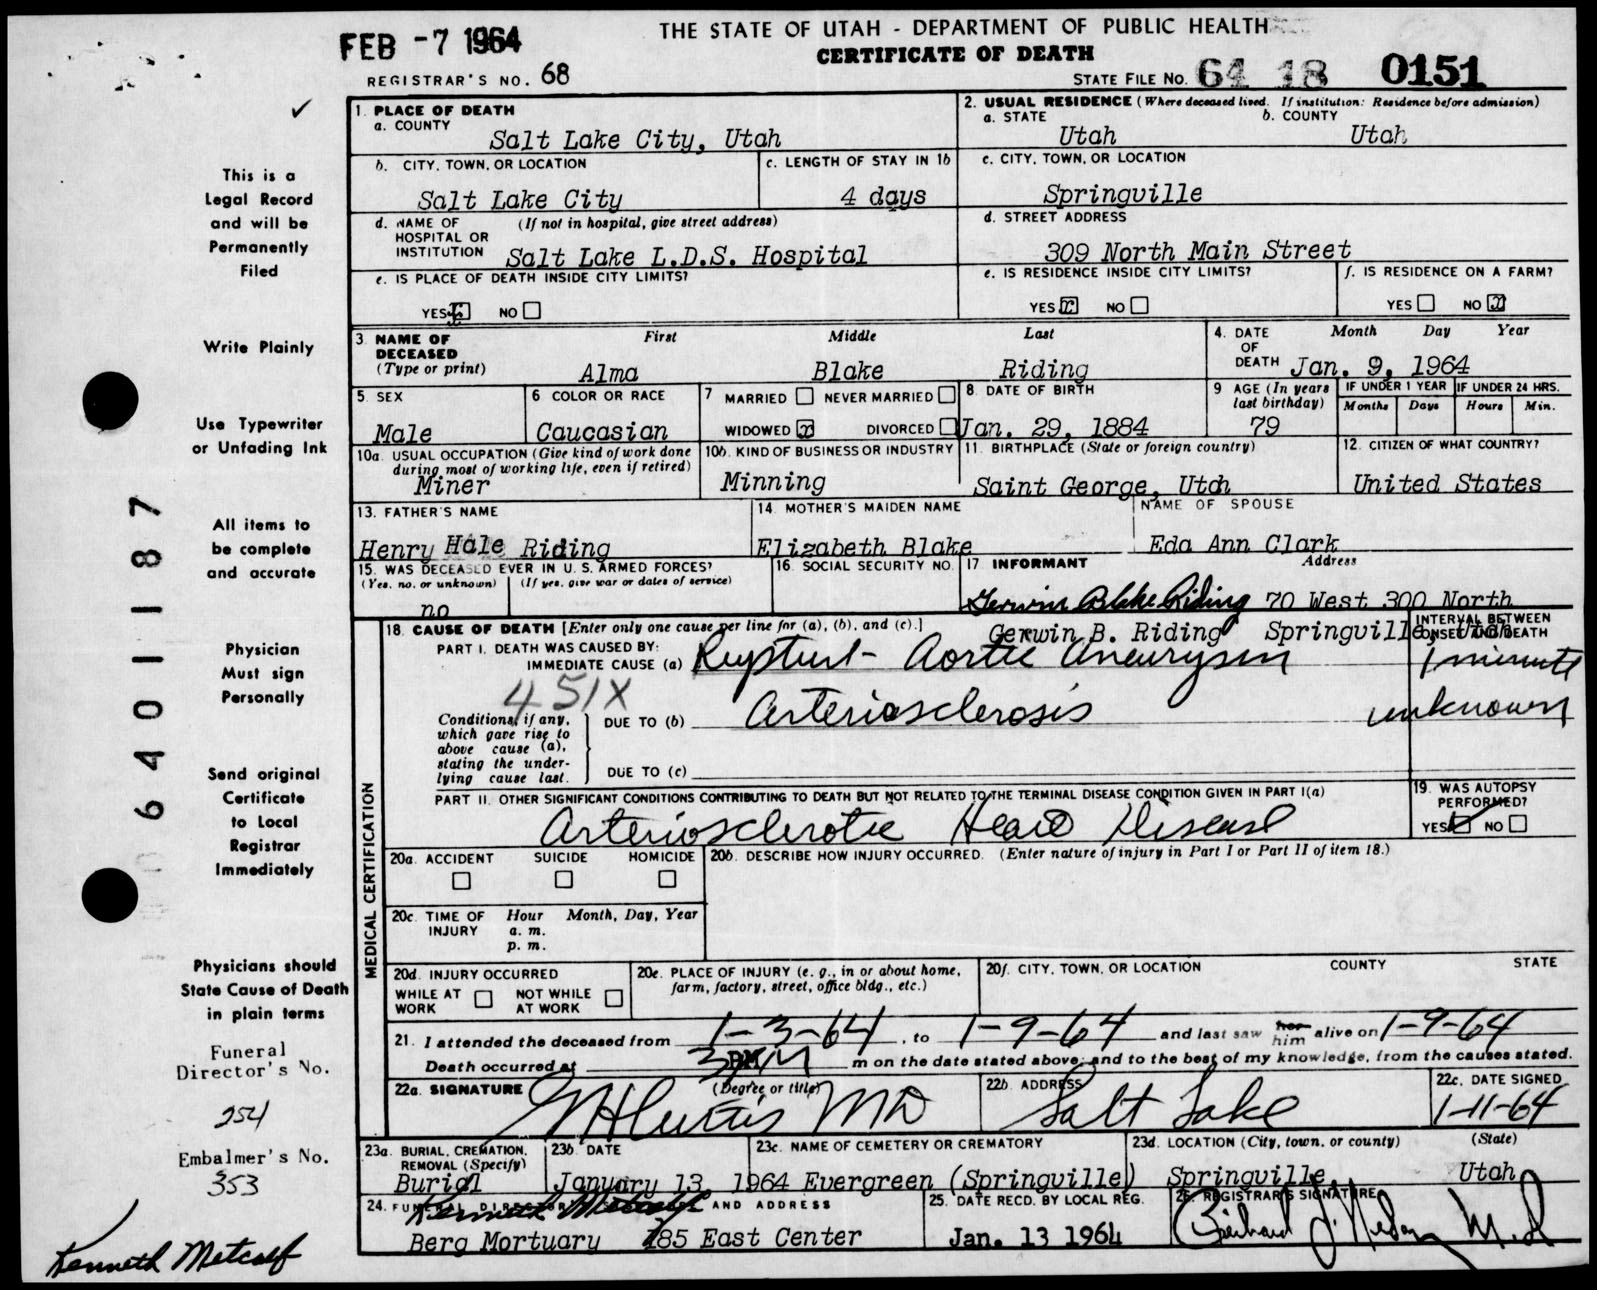 THE STATE OF UTAH - DEPARTMENT OF PUBLIC HEALTH
FEB -7 1964
CERTIFICATE OF DEATH
REGISTRAR'S NO. 68
STATE FILE NO. 64 18 0151
1. PLACE OF DEATH
a. COUNTY
Salt Lake City, Utah
2. USUAL RESIDENCE (Where deceased lived. If institution: Residence before admission)
a. STATE
Utah
b. COUNTY
Utah
b. CITY, TOWN, OR LOCATION
Salt Lake City
c. LENGTH OF STAY IN 1b
4 days
c. CITY, TOWN, OR LOCATION
Springville
d. NAME OF HOSPITAL OR INSTITUTION (If not in hospital, give street address)
Salt Lake L.D.S. Hospital
d. STREET ADDRESS
309 North Main Street
e. IS PLACE OF DEATH INSIDE CITY LIMITS?
YES x NO
e. IS RESIDENCE INSIDE CITY LIMITS?
YES x NO
f. IS RESIDENCE ON A FARM?
YES NO x
3. NAME OF DECEASED (Type or print)
First Middle Last
Alma Blake Riding
4. DATE OF DEATH
Month Day Year
Jan. 9, 1964
5. SEX
Male
6 COLOR OR RACE
Caucasian
7 MARRIED NEVER MARRIED
WIDOWED x DIVORCED
8. DATE OF BIRTH
Jan. 29, 1884
9 AGE (In years last birthday)
79
IF UNDER 1 YEAR
Months Days
IF UNDER 24 HRS.
Hours Min.
10a. USUAL OCCUPATION (Give kind of work done during most of working life, even if retired)
Miner
10b. KIND OF BUSINESS OR INDUSTRY
Minning
11. BIRTHPLACE (State or foreign country)
Saint George, Utah
12. CITIZEN OF WHAT COUNTRY?
United States
13. FATHER'S NAME
Henry Hale Riding
14. MOTHER'S MAIDEN NAME
Elizabeth Blake
NAME OF SPOUSE
Eda Ann Clark
15. WAS DECEASED EVER IN U.S. ARMED FORCES?
(Yes, no, or unknown) (If yes, give war or dates of service)
no
16. SOCIAL SECURITY NO.
17. INFORMANT Address
Gerwin Blake Riding 70 West 300 North
Gerwin B. Riding Springville, Utah
18. CAUSE OF DEATH [Enter only one cause per line for (a), (b), and (c).]
INTERVAL BETWEEN ONSET AND DEATH
PART I. DEATH WAS CAUSED BY:
IMMEDIATE CAUSE (a) Ruptured Aortic Aneurysm 1 minute
451X
Conditions, if any, which gave rise to above cause (a), stating the underlying cause last.
DUE TO (b) Arteriosclerosis unknown
DUE TO (c)
PART II. OTHER SIGNIFICANT CONDITIONS CONTRIBUTING TO DEATH BUT NOT RELATED TO THE TERMINAL DISEASE CONDITION GIVEN IN PART I(a)
Arteriosclerotic Heart Disease
19. WAS AUTOPSY PERFORMED?
YES NO
20a. ACCIDENT SUICIDE HOMICIDE
20b. DESCRIBE HOW INJURY OCCURRED. (Enter nature of injury in Part I or Part II of item 18.)
20c. TIME OF INJURY Hour Month, Day, Year
a. m.
p. m.
20d. INJURY OCCURRED
WHILE AT WORK NOT WHILE AT WORK
20e. PLACE OF INJURY (e. g., in or about home, farm, factory, street, office bldg., etc.)
20f. CITY, TOWN, OR LOCATION COUNTY STATE
21. I attended the deceased from 1-3-64, to 1-9-64 and last saw her him alive on 1-9-64
Death occurred at 3 PM m on the date stated above; and to the best of my knowledge, from the causes stated.
22a. SIGNATURE (Degree or title)
MD
22b. ADDRESS
Salt Lake
22c. DATE SIGNED
1-11-64
23a. BURIAL, CREMATION, REMOVAL (Specify)
Burial
23b. DATE
January 13, 1964
23c. NAME OF CEMETERY OR CREMATORY
Evergreen (Springville)
23d. LOCATION (City, town, or county) (State)
Springville Utah
24. FUNERAL DIRECTOR'S SIGNATURE AND ADDRESS
Kenneth Metcalf
Berg Mortuary 185 East Center
25. DATE RECD. BY LOCAL REG.
Jan. 13 1964
26. REGISTRAR'S SIGNATURE
M.D.
MEDICAL CERTIFICATION
This is a
Legal Record
and will be
Permanently
Filed
Write Plainly
Use Typewriter
or Unfading Ink
All items to
be complete
and accurate
Physician
Must sign
Personally
Send original
Certificate
to Local
Registrar
Immediately
Physicians should
State Cause of Death
in plain terms
Funeral
Director's No.
254
Embalmer's No.
353
Kenneth Metcalf
6401187